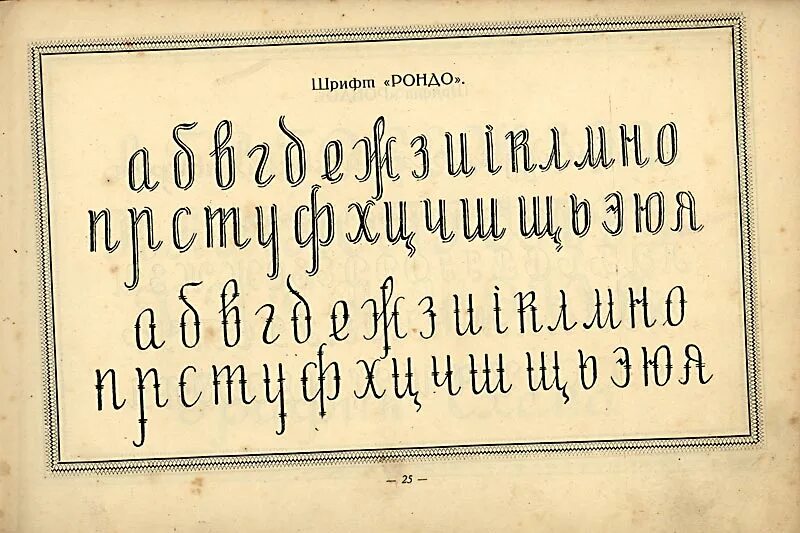 Шрифт «РОНДО».
абвгдежзиіклмно
прстуфхцчшщьэюя
абвгдежзиіклмно
прстуфхцчшщьэюя
— 25 —